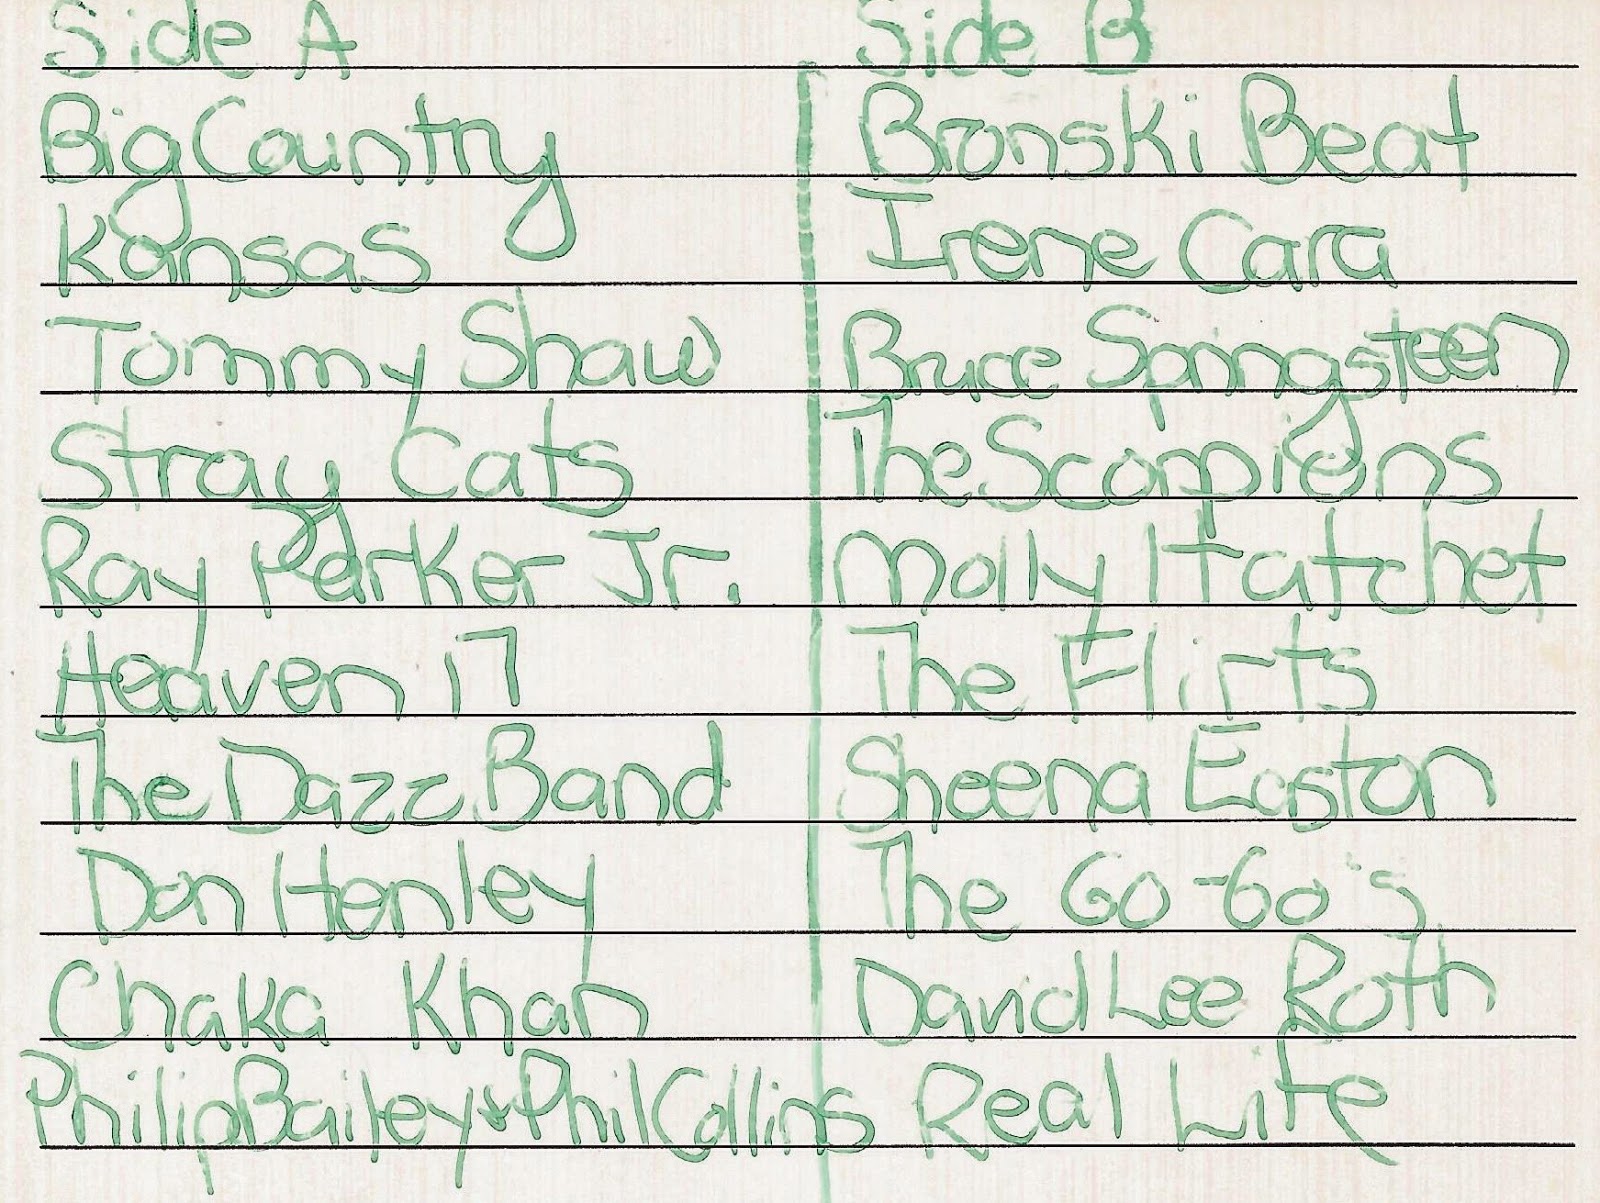 Side A
Big Country
Kansas
Tommy Shaw
Stray Cats
Ray Parker Jr.
Heaven 17
The Dazz Band
Don Henley
Chaka Khan
Philip Bailey & Phil Collins
Side B
Bronski Beat
Irene Cara
Bruce Springsteen
The Scorpions
Molly Hatchet
The Flirts
Sheena Easton
The Go-Go's
David Lee Roth
Real Life